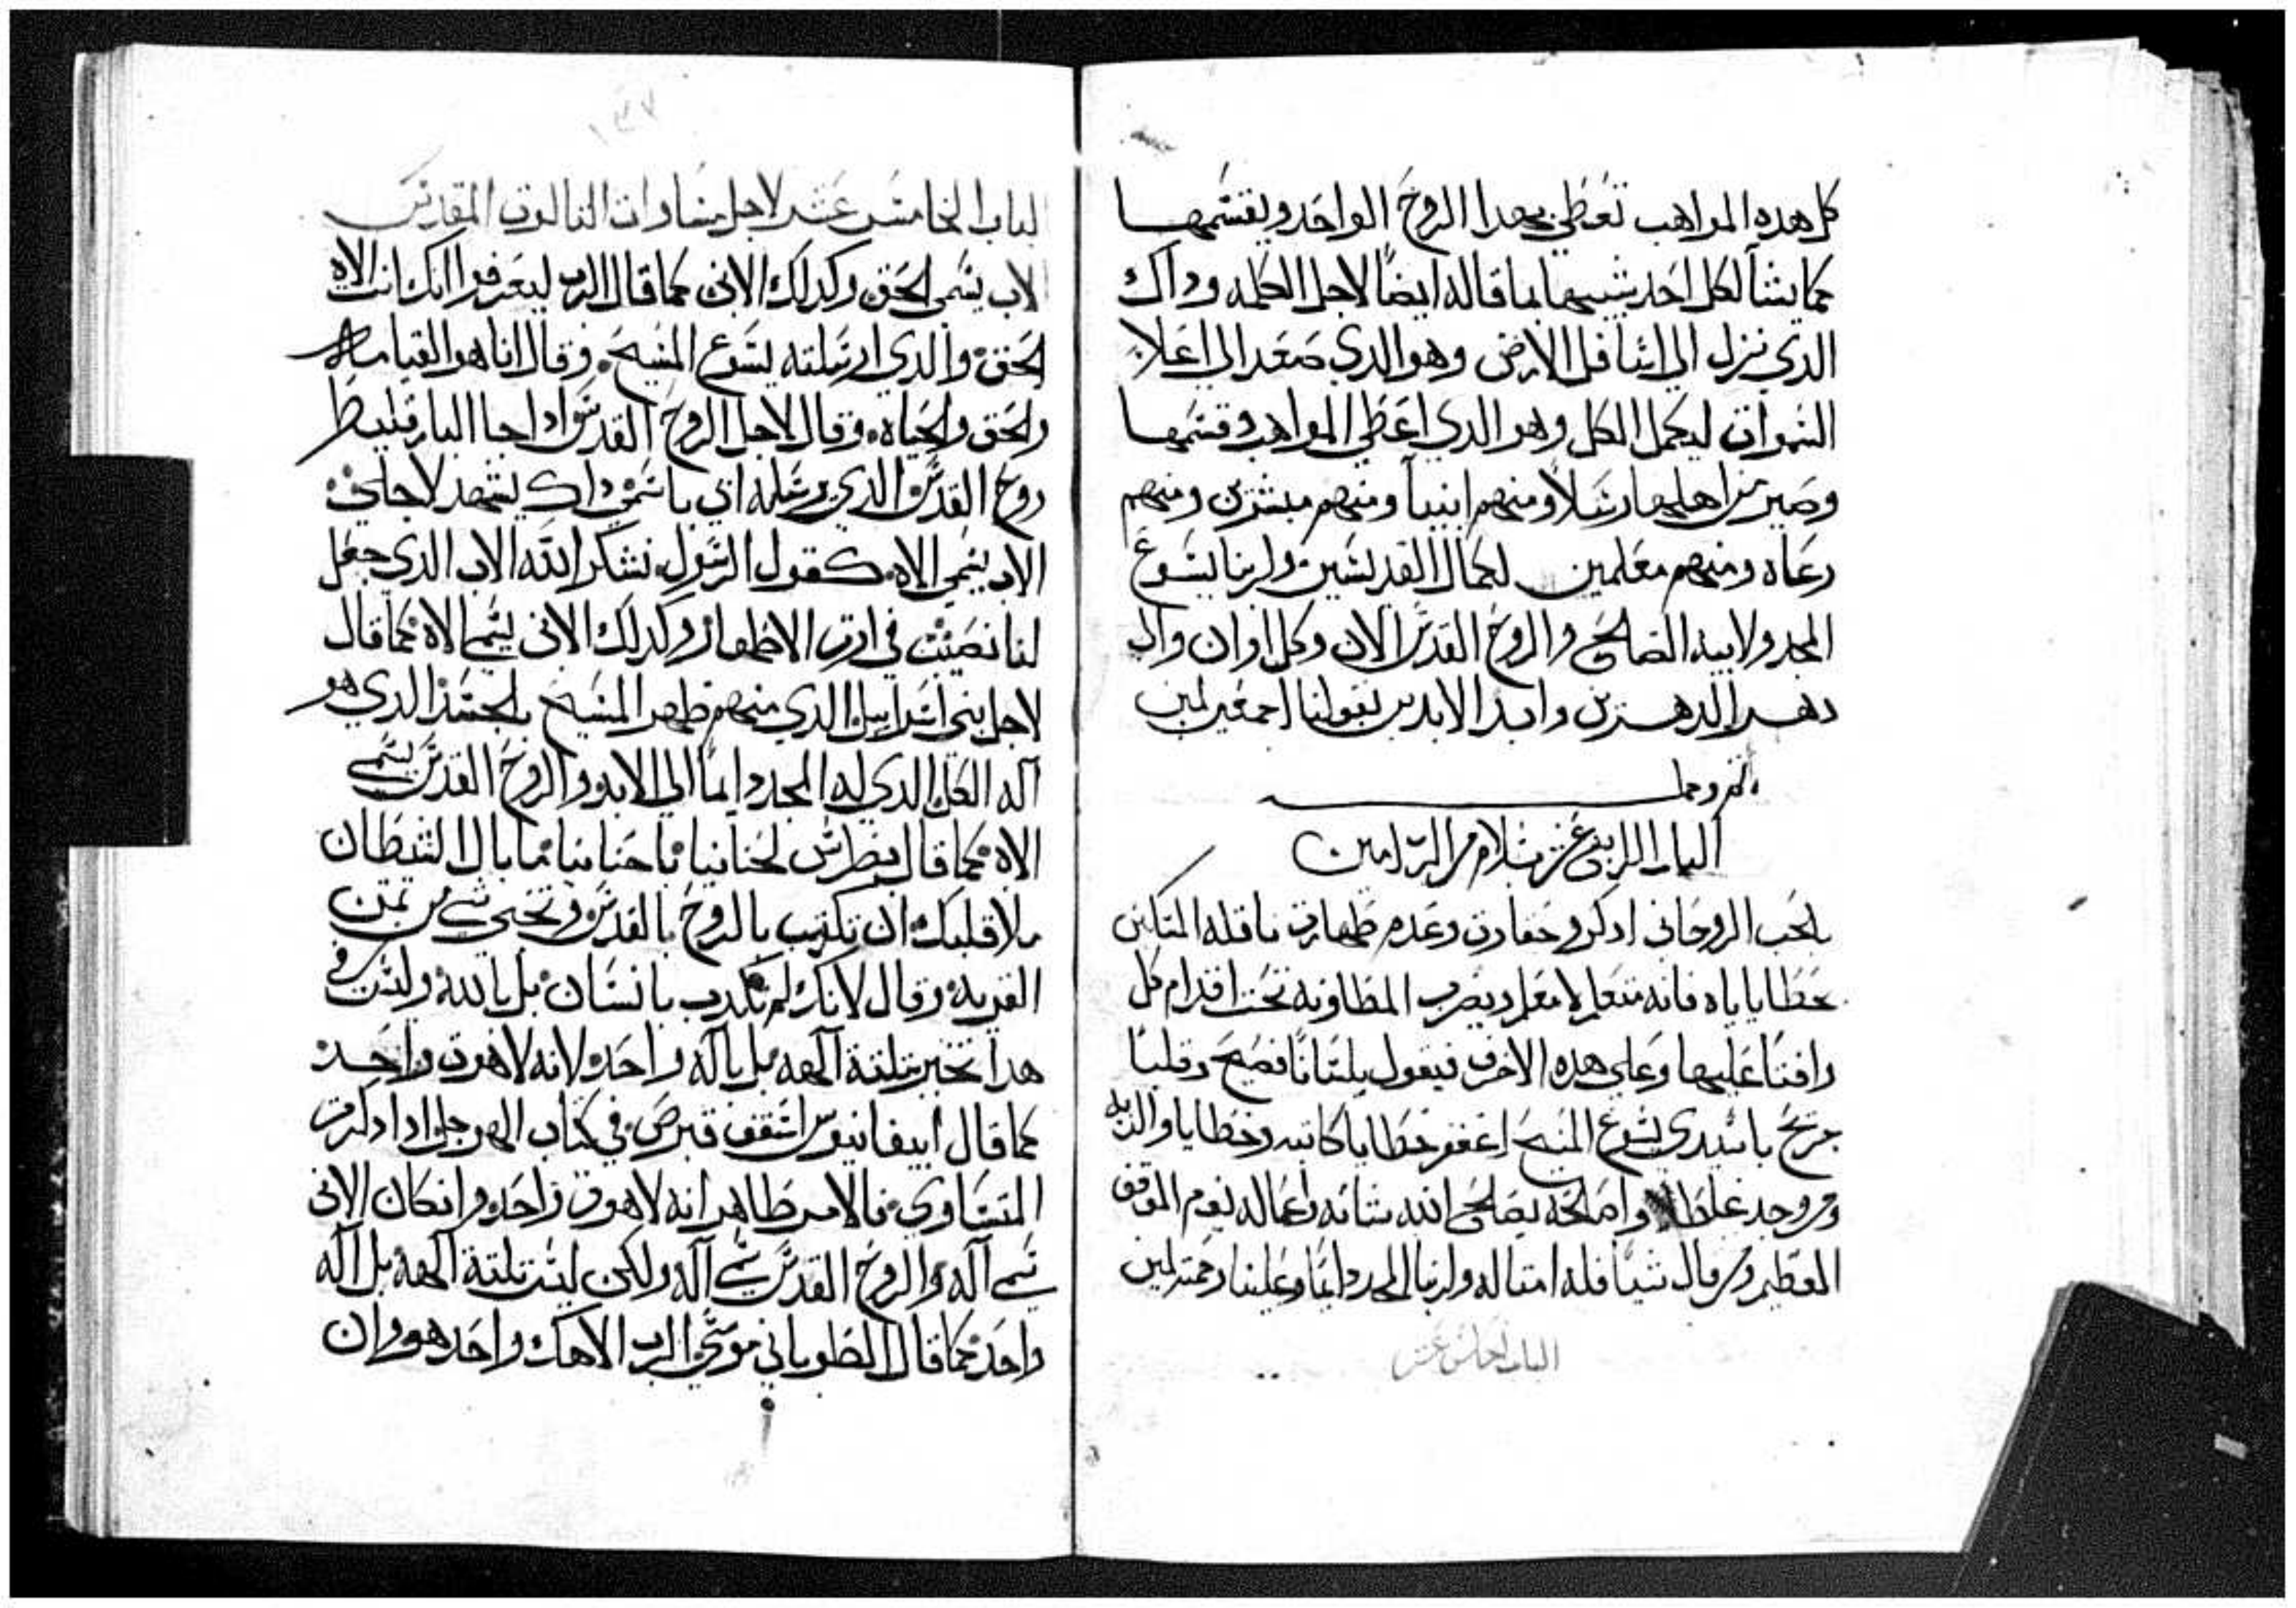 كل هده المواهب تعطي بهدا الروح الواحد ويقسمها
كما يشآ لكل احد شبيها بما قاله ايضًا لاجل الكلمه وداك
الدي نزل الي اسافل الارض وهو الدي صعد الي اعلا
السموات ليكمل الكل وهو الدي اعطي المواهب وقسمها
وصير من اهلها رسلاً ومنهم انبيآ ومنهم مبشرين ومنهم
رعاه ومنهم معلمين لكمال القديسين ولربنا يسوع
المجد ولابيه الصالح والروح القدس الان وكل اوان والي
دهر الدهرين وابد الابدين نقولنا اجمعين امين
تم وكمل
الباب الرابع عشر بسلام من الرب امين
بالحب الروحاني ادكرو حقارت وعدم طهارت ناقله المسكين
بخطاياياه فانه متعلم لا معلم ويضرب المطاونه تحت اقدام كل
واقفًا عليها وعلي هده الاحرف فيقول بلسانًا فصيح وقلبًا
جريح ياسيدي يسوع المسيح اغفر خطايا كاتبه وخطايا والديه
ومن وجد غلطا واصلحه يصلح الله شانه واعماله يوم الموقف
العظيم ومن قال شيا فله امتاله ولربنا المجد دايمًا وعلينا رحمته امين
الباب الخامس عشر
١٣٧
الباب الخامس عشر لاجل مساوات التالوت المقدس
الاب يسمي الحق وكدلك الابن كما قال الرب ليعرفوا انك انت الاه
الحق والدي ارسلته يسوع المسيح. وقال انا هو القيامه
والحق والحياه. وقال لاجل الروح القدس ادا جا البارقليط
روح القدس الدي يرسله ابي باسمي داك يشهد لاجلي
الاب يسمي الاه كقول الرسول نشكر الله الاب الدي جعل
لنا نصيب في ارت الاطهار وكدلك الابن يسمي الاه كما قال
لاجل بني اسراييل الدي منهم ظهر المسيح بالجسد الدي هو
آله الكل الدي له المجد دايمًا الي الابد والروح القدس يسمي
الاه كما قال بطرس لحنانيا يا حنانيا ما بال الشيطان
ملا قلبك ان تكدب بالروح بالقدس وتخبي شي من تمن
القريه وقال لانك لم تكدب بانسان بل بالله وليس في
هدا تخبر بتلتة آلهه بل باله واحد لانه لاهوت واحد
كما قال ابيفانيوس اسقف قبرص في كتاب المرجل ادا دكرت
المتساوي فالامر ظاهر انه لاهوت واحد وان كان الابن
سمي آله والروح القدس سمي آله ولكن ليس تلتة آلهة بل آله
واحد كما قال الطوباني موسي الرب الاهك واحد هو وان